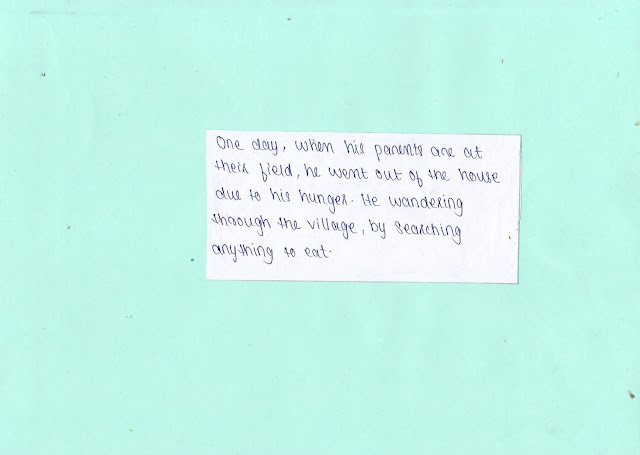 One day, when his parents are at
their field, he went out of the house
due to his hunger. He wandering
through the village, by searching
anything to eat.